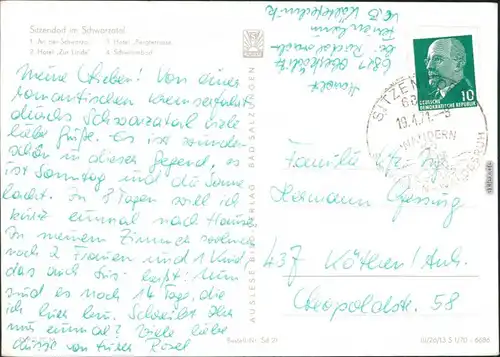 Sitzendorf im Schwarzatal
1. An der Schwarza
2. Hotel "Zur Linde"
3. Hotel "Bergterrasse"
4. Schwimmbad
Meine Lieben! Von einer
romantischen
durchs Schwarzatal viele
liebe Grüße. Es ist wunder-
schön in dieser Gegend, es
ist Sonntag und die Sonne
lacht. In 8 Tagen will ich
kurz einmal nach Hause.
In meinem Zimmer wohnen
noch 2 Frauen und 1 Kind,
das auch heißt. Nun
sind es noch 14 Tage, die
ich hier bin. Schreibt Ihr
mir einmal? Viele liebe
Grüße von Eurer Rosel
AUSLESE BILD-VERLAG BAD SALZUNGEN
Bestell-Nr. Sd 21
III/26/13 S 1/70 - 6686
DEUTSCHE
DEMOKRATISCHE REPUBLIK
10
19.4.71
WANDERN
Familie
Hermann
437 Köthen/Anh.
Leopoldstr. 58